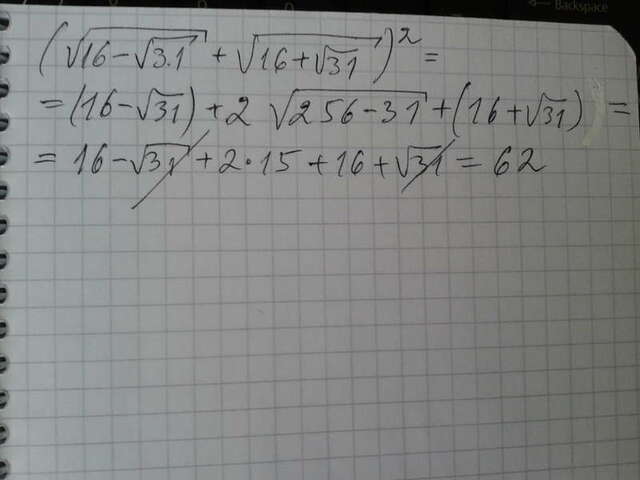 ← Backspace
(√(16-√31) + √(16+√31))² =
= (16-√31) + 2 √(256-31) + (16+√31) =
= 16 - √31 + 2·15 + 16 + √31 = 62